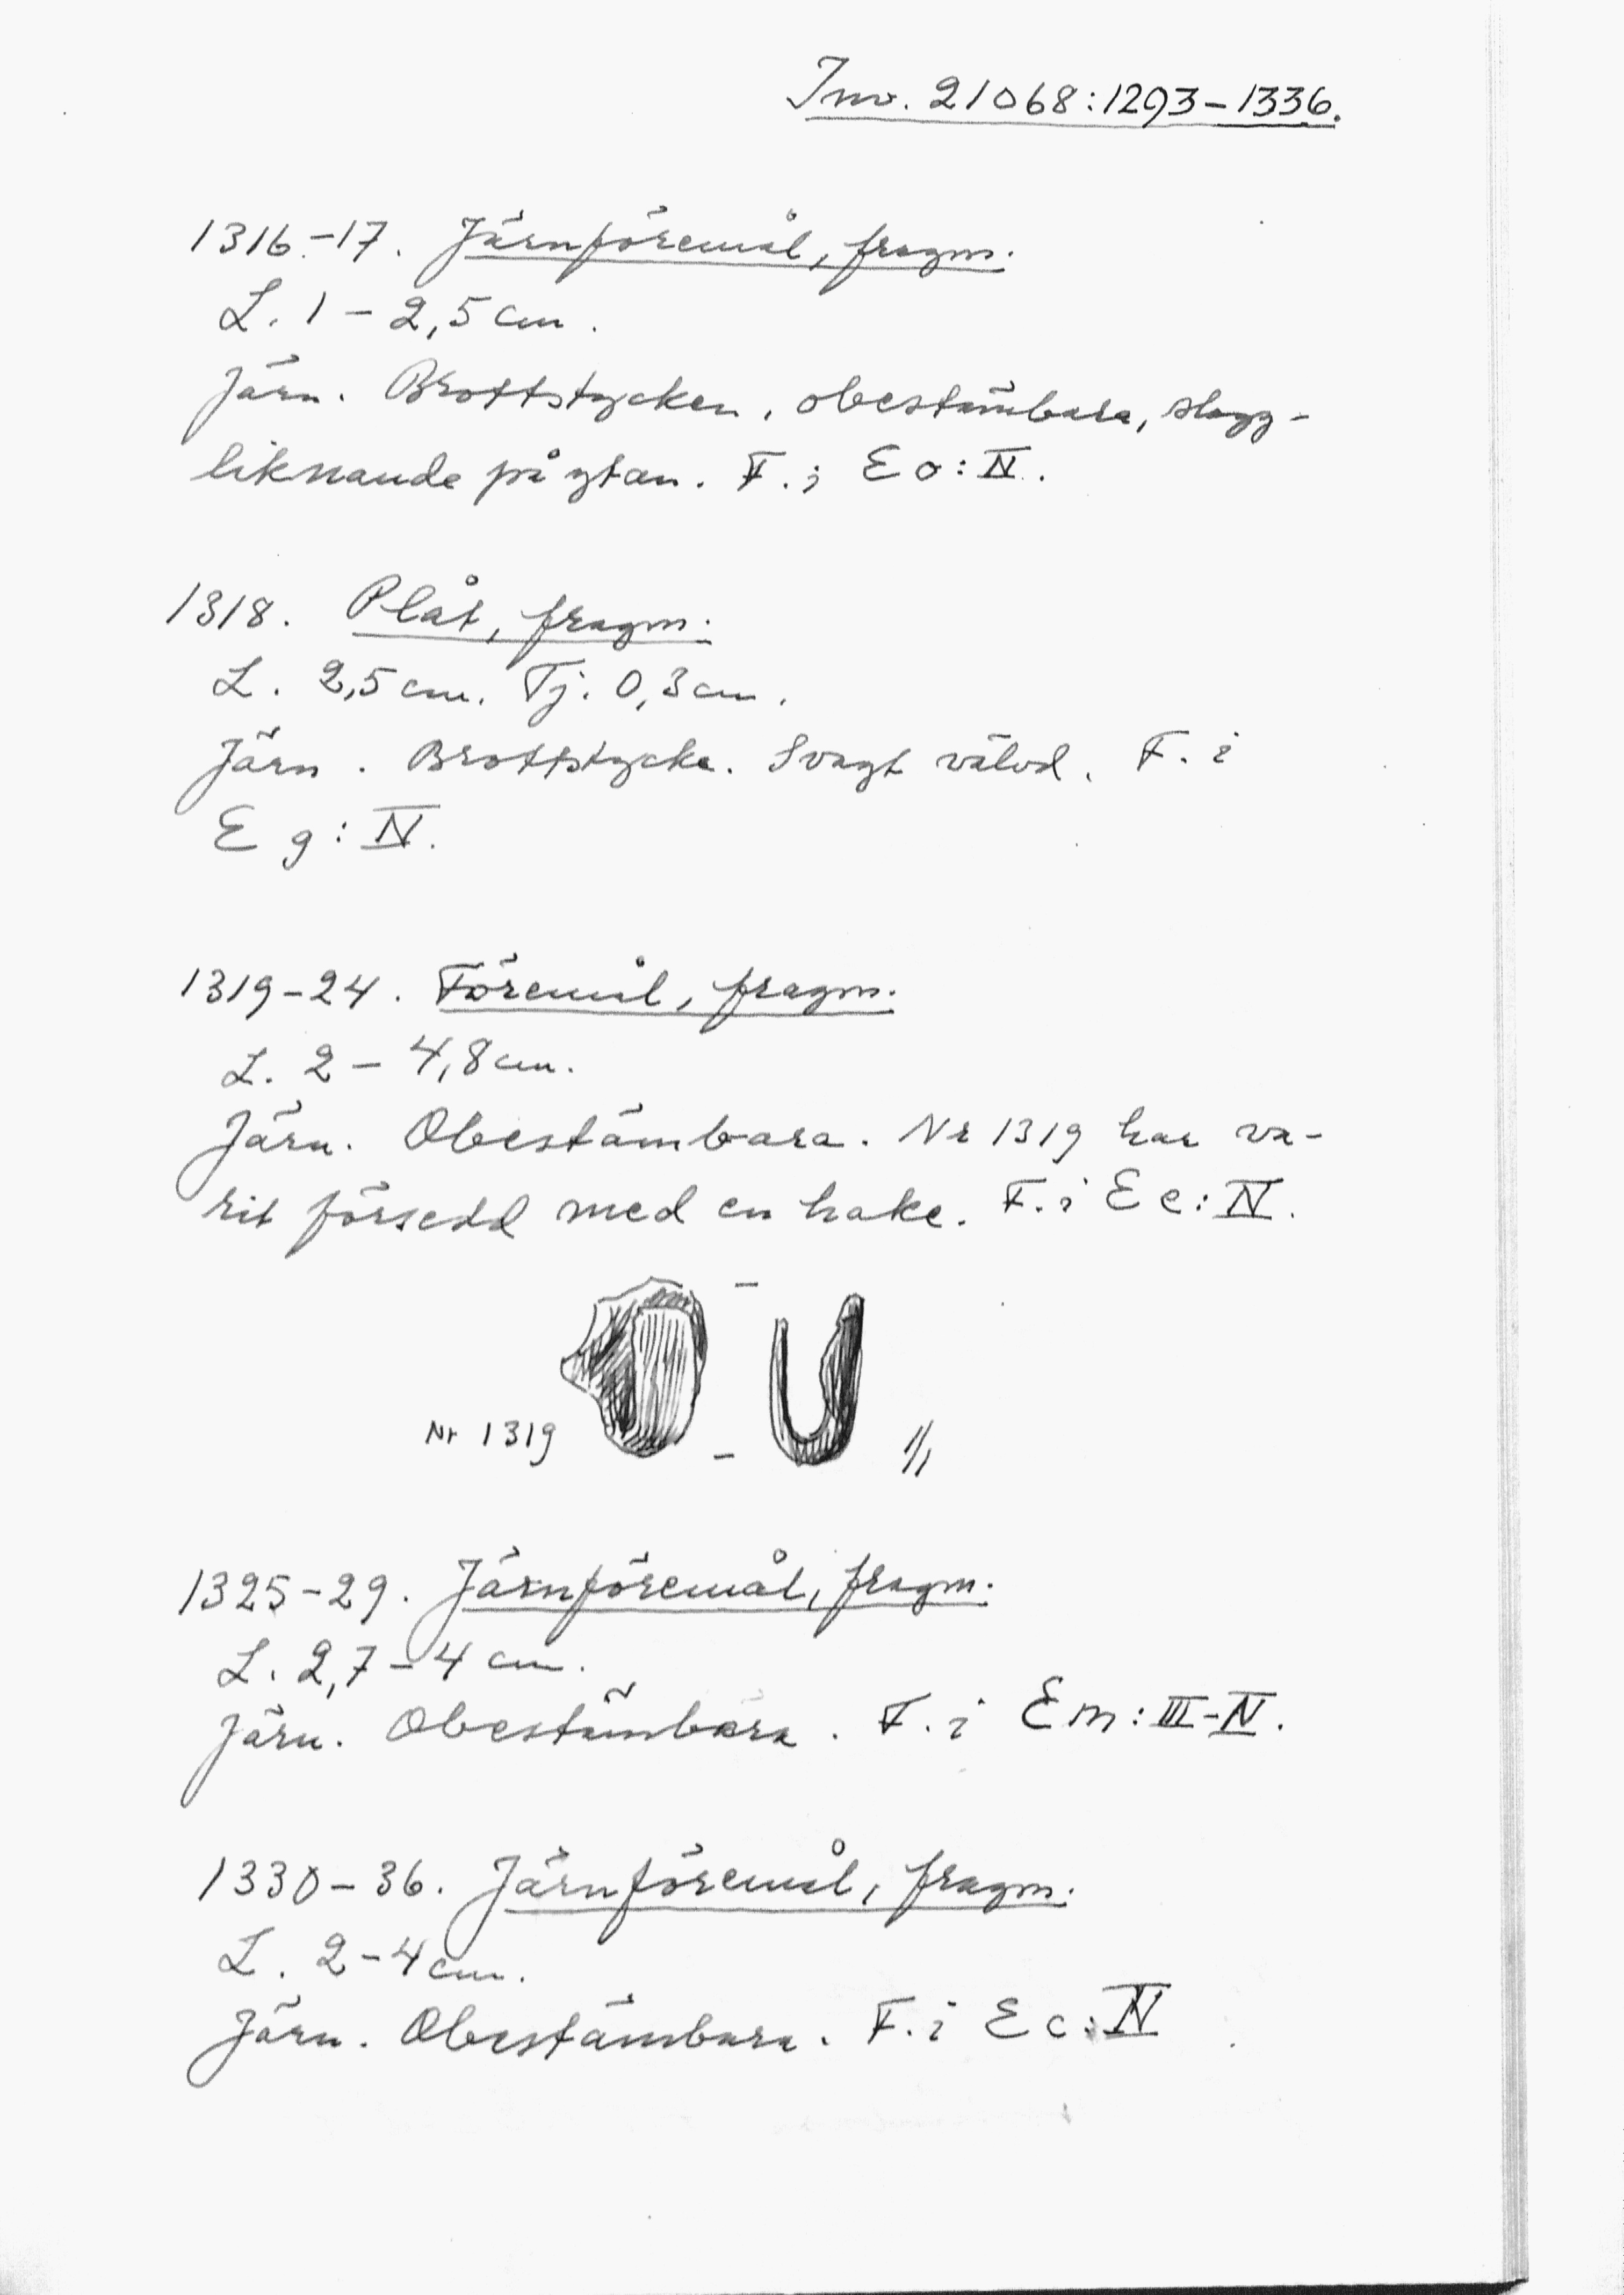 Inv. 21068:1293-1336.
1316-17. Järnföremål, fragm.
L. 1-2,5 cm.
Järn. Brottstycken, obestämbara, slagg-
liknande på ytan. F. i Eo: IV.
1318. Plåt, fragm.
L. 2,5 cm. Tj. 0,3 cm.
Järn. Brottstycke. Svagt välvd. F. i
E g: IV.
1319-24. Föremål, fragm.
L. 2 - 4,8 cm.
Järn. Obestämbara. Nr 1319 har va-
rit försedd med en hake. F. i E e: IV.
Nr 1319
1/1
1325-29. Järnföremål, fragm.
L. 2,7-4 cm.
Järn. Obestämbara. F. i E m: III-IV.
1330-36. Järnföremål, fragm.
L. 2-4 cm.
Järn. Obestämbara. F. i E c: IV.